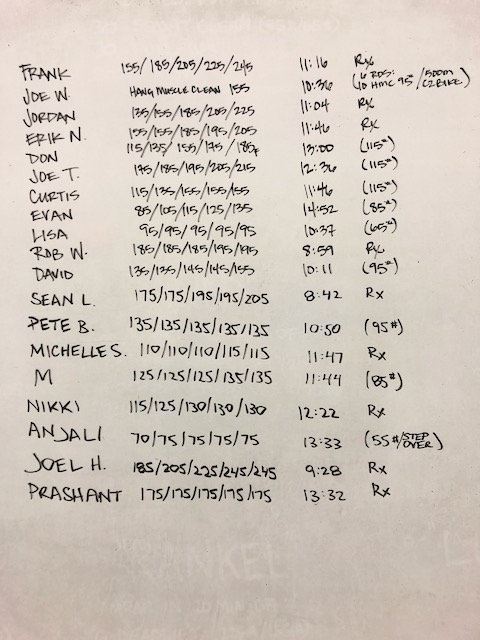 FRANK 155/185/205/225/245 11:16 Rx
JOE W. HANG MUSCLE CLEAN 155 10:36 (6 RDS: 10 HMC 95# / 500M C2 BIKE)
JORDAN 135/155/185/205/225 11:04 Rx
ERIK N. 155/155/185/195/205 11:46 Rx
DON 115/135/155/175/185F 13:00 (115#)
JOE T. 175/185/195/205/215 12:36 (115#)
CURTIS 115/135/155/155/155 11:46 (115#)
EVAN 85/105/115/125/135 14:52 (85#)
LISA 95/95/95/95/95 10:37 (65#)
ROB W. 185/185/185/195/195 8:59 Rx
DAVID 135/135/145/145/155 10:11 (95#)
SEAN L. 175/175/195/195/205 8:42 Rx
PETE B. 135/135/135/135/135 10:50 (95#)
MICHELLE S. 110/110/110/115/115 11:47 Rx
M 125/125/125/135/135 11:44 (85#)
NIKKI 115/125/130/130/130 12:22 Rx
ANJALI 70/75/75/75/75 13:33 (55#/STEP OVER)
JOEL H. 185/205/225/245/245 9:28 Rx
PRASHANT 175/175/175/175/175 13:32 Rx
"RANKEL"